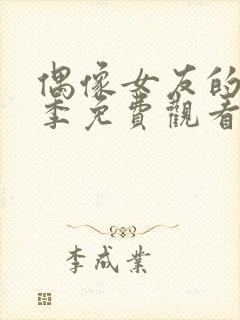 偶像女友的
季免費觀看
李成業